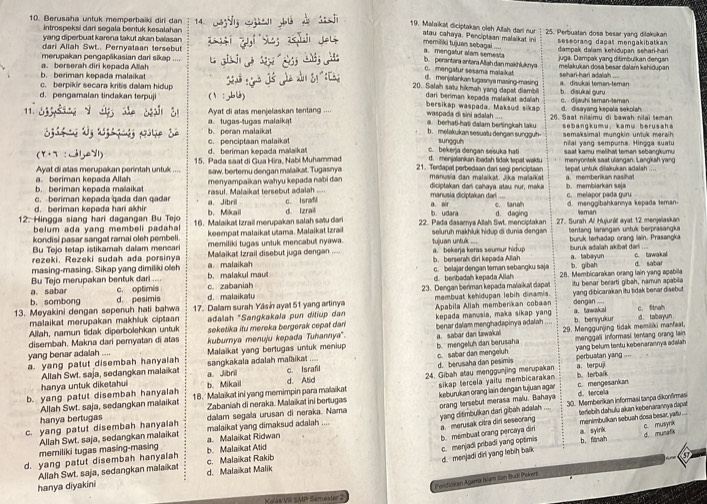 10. Berusaha untuk memperbaiki diri dan
introspeksi dari segala bentuk kesalahan
yang diperbuat karena takut akan balasan
dari Allah Swt.. Pernyataan tersebut
merupakan pengaplikasian dari sikap ....
a. berserah diri kepada Allah
b. beriman kepada malaikat
c. berpikir secara kritis dalam hidup
d. pengamalan tindakan terpuji
11.
Ayat di atas merupakan perintah untuk ....
a. beriman kepada Allah
b. beriman kepada malaikat
c. beriman kepada qada dan qadar
d. beriman kepada hari akhir
12. Hingga siang hari dagangan Bu Tejo
belum ada yang membeli padahal
kondisi pasar sangat ramai oleh pembeli.
Bu Tejo tetap istikamah dalam mencari
rezeki. Rezeki sudah ada porsinya
masing-masing. Sikap yang dimiliki oleh
Bu Tejo merupakan bentuk dari ....
a. sabar c. optimis
b. sombong d. pesimis
13. Meyakini dengan sepenuh hati bahwa
malaikat merupakan makhluk ciptaan
Allah, namun tidak diperbolehkan untuk
disembah. Makna dari pernyatan di atas
yang benar adalah ....
a. yang patut disembah hanyalah
Allah Swt. saja, sedangkan malaikat
hanya untuk diketahui
b. yang patut disembah hanyalah
Allah Swt. saja, sedangkan malaikat
hanya bertugas
c. yang patut disembah hanyalah
Allah Swt. saja, sedangkan malaikat
memiliki tugas masing-masing
d. yang patut disembah hanyalah
Allah Swt. saja, sedangkan malaikat
hanya diyakini
14.
Ayat di atas menjelaskan tentang ....
a. tugas-tugas malaikat
b. peran malaikat
c. penciptaan malaikat
d. beriman kepada malaikat
15. Pada saat di Gua Hira, Nabi Muhammad
saw. bertemu dengan malaikat. Tugasnya
menyampaikan wahyu kepada nabi dan
rasul. Malaikat tersebut adalah ....
a. Jibril c. Israfil
b. Mikail d. Izrail
16. Malaikat Izrail merupakan salah satu dari
keempat malaikat utama. Malaikat Izrail
memiliki tugas untuk mencabut nyawa.
Malaikat Izrail disebut juga dengan ....
a. malaikah
b. malakul maut
c. zabaniah
d. malaikatu
17. Dalam surah Yāsīn ayat 51 yang artinya
adalah "Sangkakala pun ditiup dan
seketika itu mereka bergerak cepat dari
kuburnya menuju kepada Tuhannya".
Malaikat yang bertugas untuk meniup
sangkakala adalah malaikat ....
a. Jibril c. Israfil
b. Mikail d. Atid
18. Malaikat ini yang memimpin para malaikat
Zabaniah di neraka. Malaikat ini bertugas
dalam segala urusan di neraka. Nama
malaikat yang dimaksud adalah ....
a. Malaikat Ridwan
b. Malaikat Atid
c. Malaikat Rakib
d. Malaikat Malik
19. Malaikat diciptakan oleh Allah dari nur
atau cahaya. Penciptaan malaikat ini
memiliki tujuan sebagai ....
a. mengatur alam semesta
b. perantara antara Allah dan makhluknya
c. mengatur sesama malaikat
d. menjalankan tugasnya masing-masing
20. Salah satu hikmah yang dapat diambil
dari beriman kepada malaikat adalah
bersikap waspada. Maksud sikap
waspada di sini adalah ....
a. berhati-hati dalam bertingkah laku
b. melakukan sesuatu dengan sungguh-
sungguh
c. bekerja dengan sesuka hati
d. menjalankan ibadah tidak tepat waktu
21. Terdapat perbedaan dari segi penciptaan
manusia dan malaikat. Jika malaikat
diciptakan dari cahaya atau nur, maka
manusia diciptakan dari ....
a. air c. tanah
b. udara d. daging
22. Pada dasarnya Allah Swt. menciptakan
seluruh makhluk hidup di dunia dengan
tujuan untuk ....
a. bekerja keras seumur hidup
b. berserah diri kepada Allah
c. belajar dengan teman sebangku saja
d. beribadah kepada Allah
23. Dengan beriman kepada malaikat dapat
membuat kehidupan lebih dinamis.
Apabila Allah memberikan cobaan
kepada manusia, maka sikap yang
benar dalam menghadapinya adalah ....
a. sabar dan tawakal
b. mengeluh dan berusaha
c. sabar dan mengeluh
d. berusaha dan pesimis
24. Gibah atau menggunjing merupakan
sikap tercela yaitu membicarakan
keburukan orang lain dengan tujuan agar
orang tersebut merasa malu. Bahaya
yang ditimbulkan dari gibah adalah ....
a. merusak citra diri seseorang
b. membuat orang percaya diri
c. menjadi pribadi yang optimis
d. menjadi diri yang lebih baik
25. Perbuatan dosa besar yang dilakukan
seseorang dapat mengakibatkan
dampak dalam kehidupan sehari-hari
juga. Dampak yang ditimbulkan dengan
melakukan dosa besar dalam kehidupan
sehari-hari adalah ....
a. disukai teman-teman
b. disukai guru
c. dijauhi teman-teman
d. disayang kepala sekolah
26. Saat nilaimu di bawah nilai teman
sebangkumu, kamu berusaha
semaksimal mungkin untuk meraih
nilai yang sempurna. Hingga suatu
saat kamu melihat teman sebangkumu
menyontek saat ulangan. Langkah yang
tepat untuk dilakukan adalah ....
a. memberikan nasihat
b. membiarkan saja
c. melapor pada guru
d. menggibahkannya kepada teman-
teman
27. Surah Al Ḥujurāt ayat 12 menjelaskan
tentang larangan untuk berprasangka
buruk terhadap orang lain. Prasangka
buruk adalah akibat dari ....
a. tabayun c. tawakal
b. gibah d. sabar
28. Membicarakan orang lain yang apabila
itu benar berarti gibah, namun apabila
yang dibicarakan itu tidak benar disebut
dengan ....
a. tawakal c. fitnah
b. bersyukur d. tabayun
29. Menggunjing tidak memiliki manfaat,
menggali informasi tentang orang lain
yang belum tentu kebenarannya adalah
perbuatan yang ....
a. terpuji
b. terbaik
c. mengesankan
d. tercela
30. Memberikan informasi tanpa dikonfirmasi
terlebih dahulu akan kebenarannya dapat
menimbulkan sebuah dosa besar, yaitu ....
a. syirik c. musyrik
b. fitnah d. munafik
57
Kelas VII SMP Semester 2